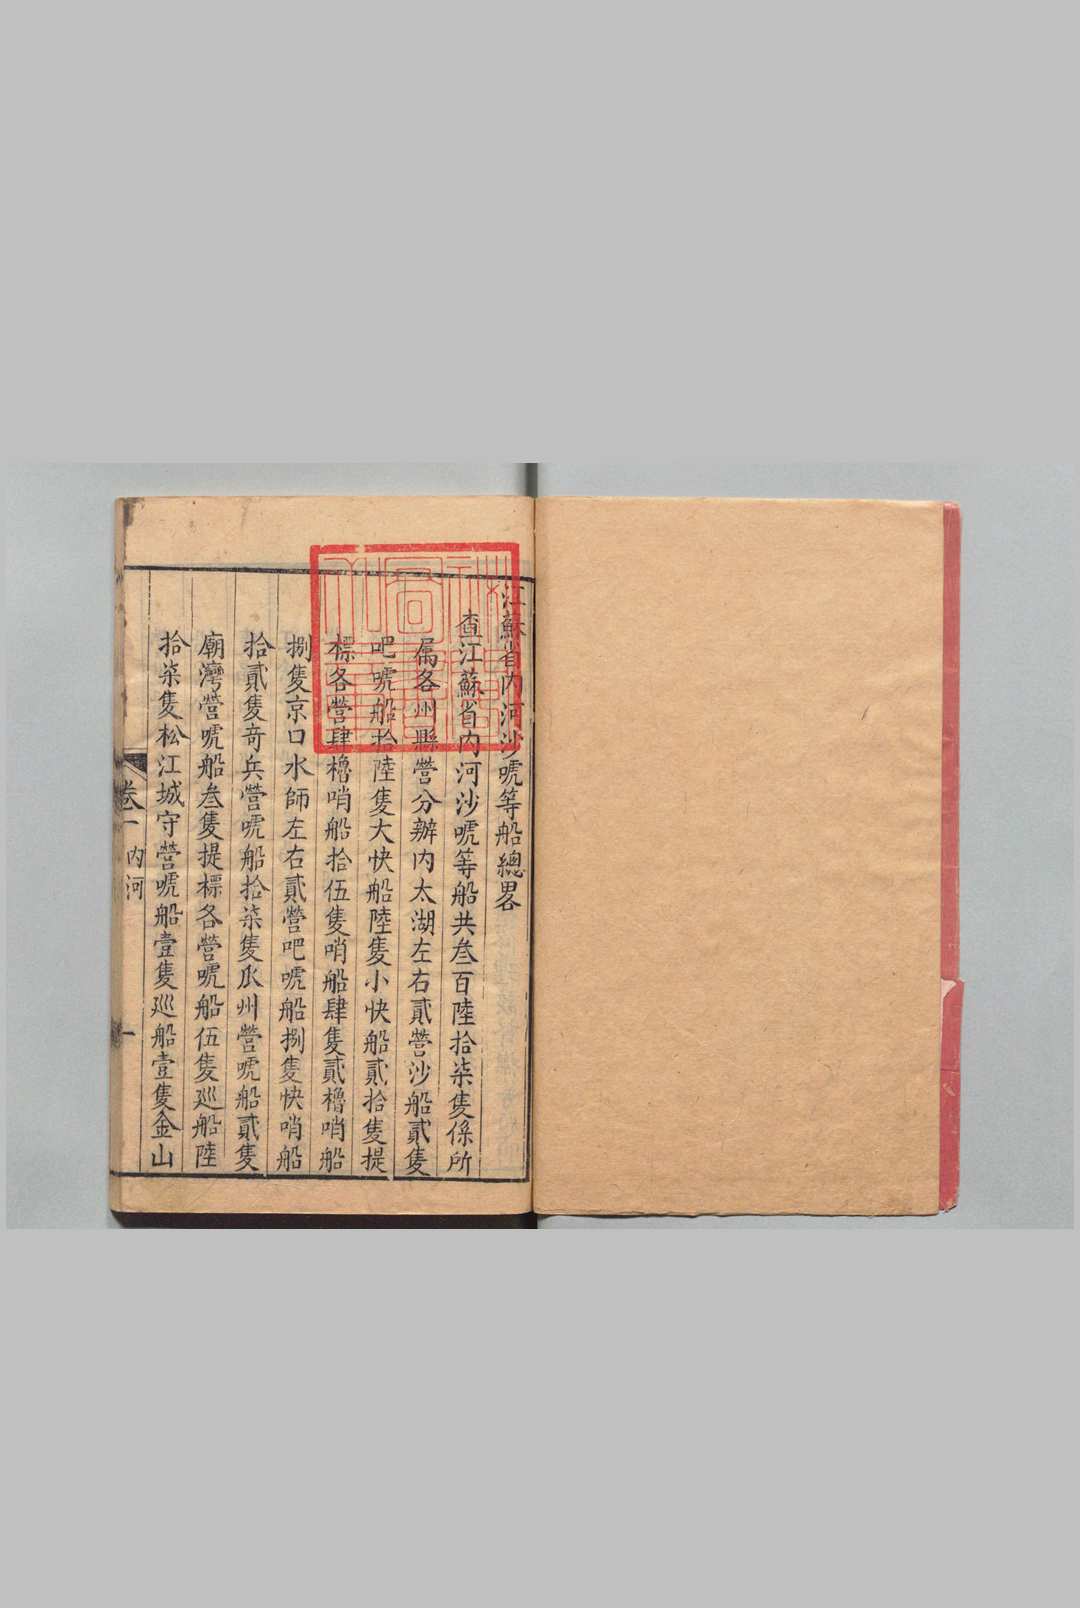 江蘇省内河沙唬等船總畧
查江蘇省内河沙唬等船共叁百陸拾柒隻係所
屬各州縣營分辦内太湖左右貳營沙船貳隻
吧唬船拾陸隻大快船陸隻小快船貳拾隻提
標各營肆櫓哨船拾伍隻哨船肆隻貳櫓哨船
捌隻京口水師左右貳營吧唬船捌隻快哨船
拾貳隻奇兵營唬船拾柒隻瓜州營唬船貳隻
廟灣營唬船叁隻提標各營唬船伍隻廵船陸
拾柒隻松江城守營唬船壹隻廵船壹隻金山
卷一 内河 一